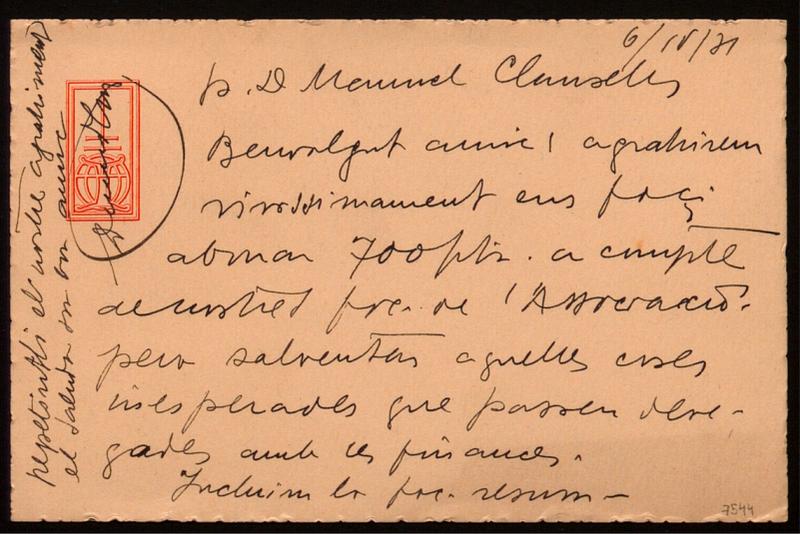 6/IV/31
p. D Manuel Clausells
Benvolgut amic! agrahirem
vivissimament ens faci
abonar 700 ptes. a compte
de nostres frac. de l'Associació.
pero salventan aquelles coses
inesperades que passen deve-
gades amb les finances.
Incluim la frac. resum -
repetintli el nostre agrahiment
el saluda son bon amic
7544